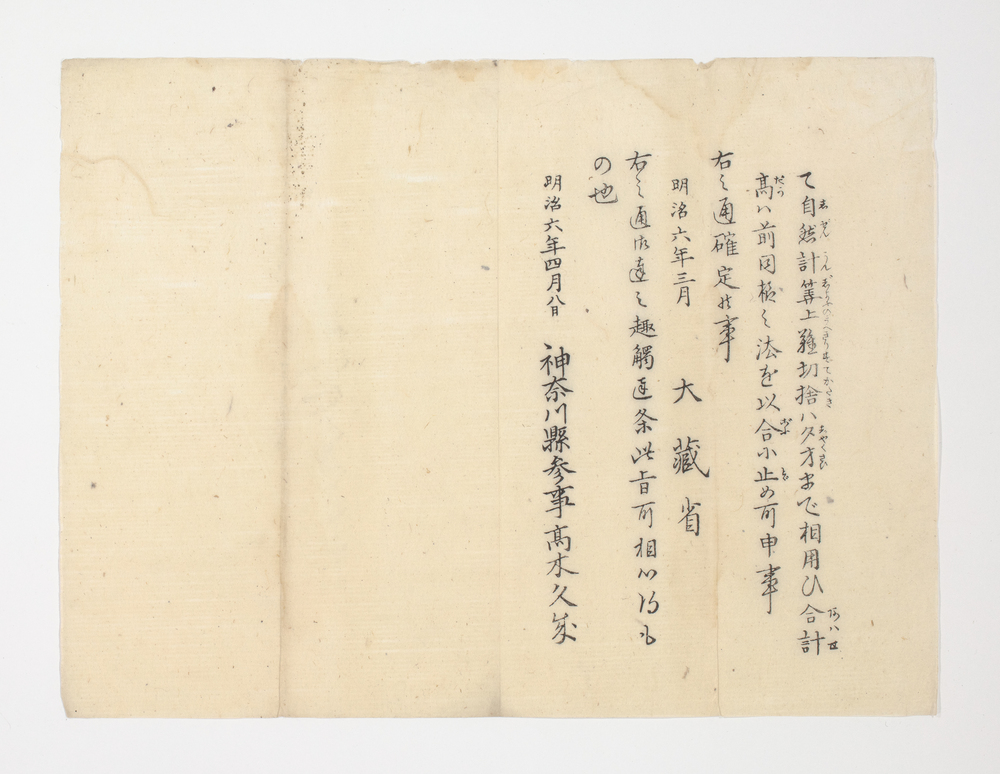 て自然計算上難切捨ハ夕方まで相用ひ合計
高ハ前同様之法を以合ニ止め可申事
右之通確定候事
明治六年三月 大藏省
右之通御達之趣觸達条此旨可相心得も
の也
明治六年四月八日 神奈川縣参事高木久成